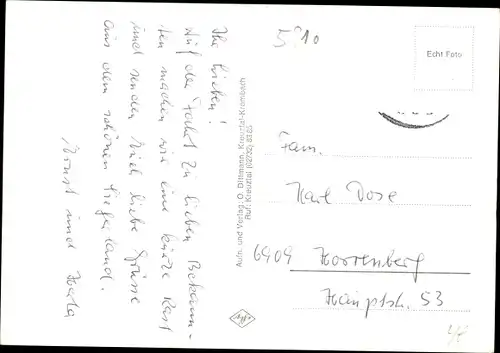 Ihr Lieben!
Auf der Fahrt zu lieben Bekann-
ten machen wir eine kurze Rast
und senden Euch liebe Grüsse
aus dem schönen Siegerland.
Ernst und
Aufn. und Verlag: O. Dittmann, Kreuztal-Krombach
Ruf: Kreuztal (02732) 8285
Echt Foto
Fam.
Karl Dose
6909 Horrenberg
Hauptstr. 53
Agfa